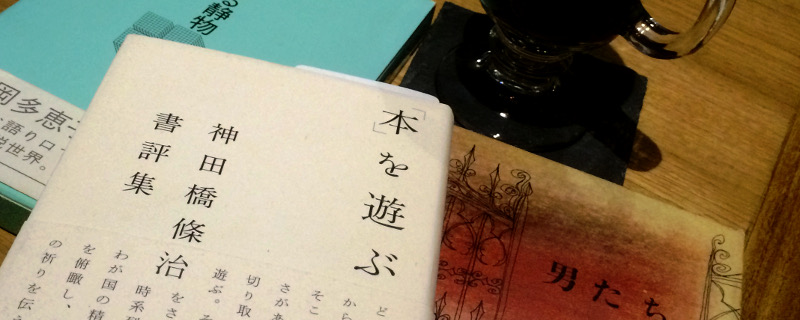 る静物
岡多恵
語りロ
世界。
「本」を遊ぶ
神田橋條治
書評集
ど
から
そこ
さがあ
切り取
遊ぶ。そ
をさ
時系列
わが国の精
を俯瞰し、
の祈りを伝
男たち